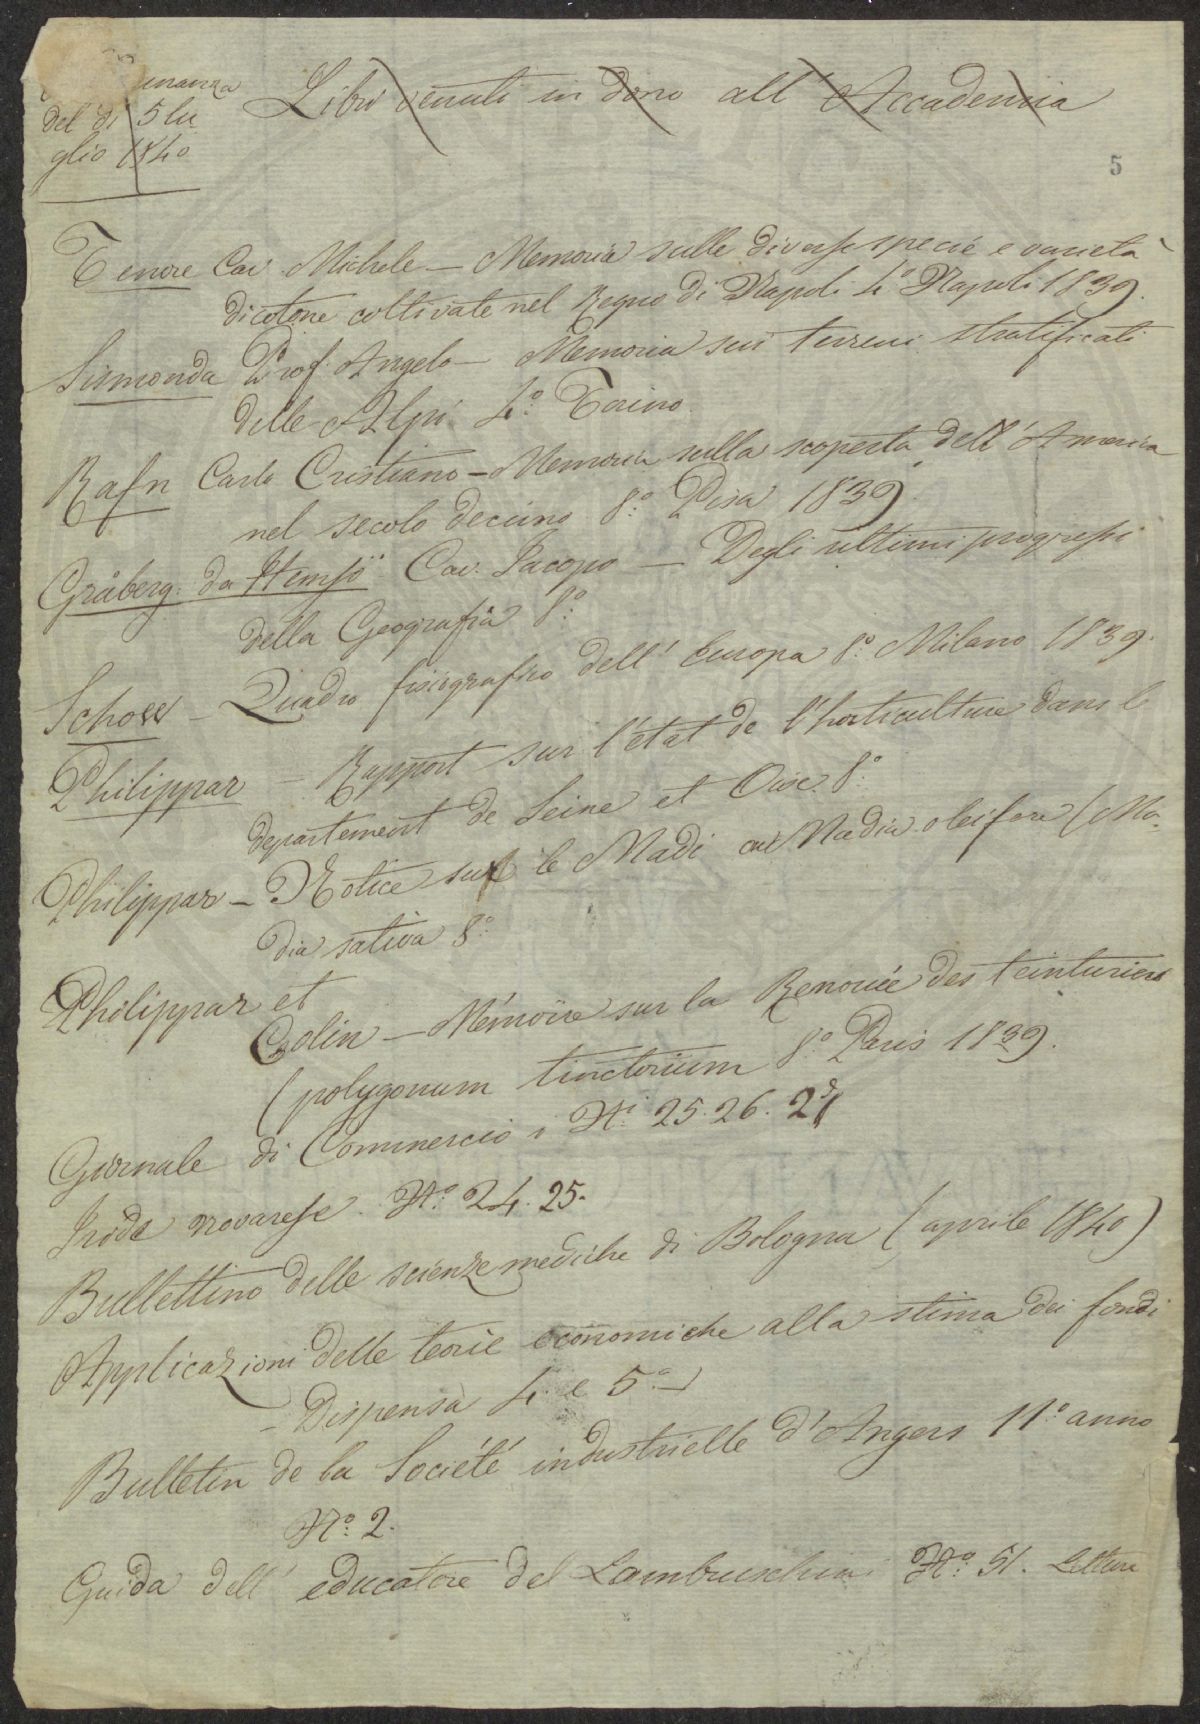 unanza
del dì 5 lu
glio 1840
Libri venuti in dono all'Accademia
5
Tenore Cav. Michele — Memoria sulle diverse specie e varietà
di cotone coltivate nel Regno di Napoli 4.° Napoli 1839.
Sismonda Prof. Angelo — Memoria sui terreni stratificati
delle Alpi 4.° Torino.
Rafn Carlo Cristiano — Memoria sulla scoperta dell'America
nel secolo decimo 8.° Pisa 1839.
Gråberg da Hemsö Cav. Jacopo — Degli ultimi progressi
della Geografia 8.°
Schow — Quadro fisiografico dell'Europa 8.° Milano 1839.
Philippar — Rapport sur l'état de l'horticulture dans le
departement de Seine et Oise 8.°
Philippar — Notice sur le Madi Madia oleifera (Ma-
dia sativa 8.°
Philippar et
Colin — Mémoire sur la Renouée des teinturiers
(polygonum tinctorium 8.° Paris 1839.
Giornale di Commercio i Ni. 25. 26.
Iride novarese. N.° 24. 25.
Bullettino delle scienze mediche di Bologna (aprile 1840)
Applicazioni delle teorie economiche alla stima dei fondi
— Dispensa 4. e 5.a —
Bulletin de la Société industrielle d'Angers 11.° anno
N.° 2.
Guida dell'educatore del Lambruschini N.° 51. Letture